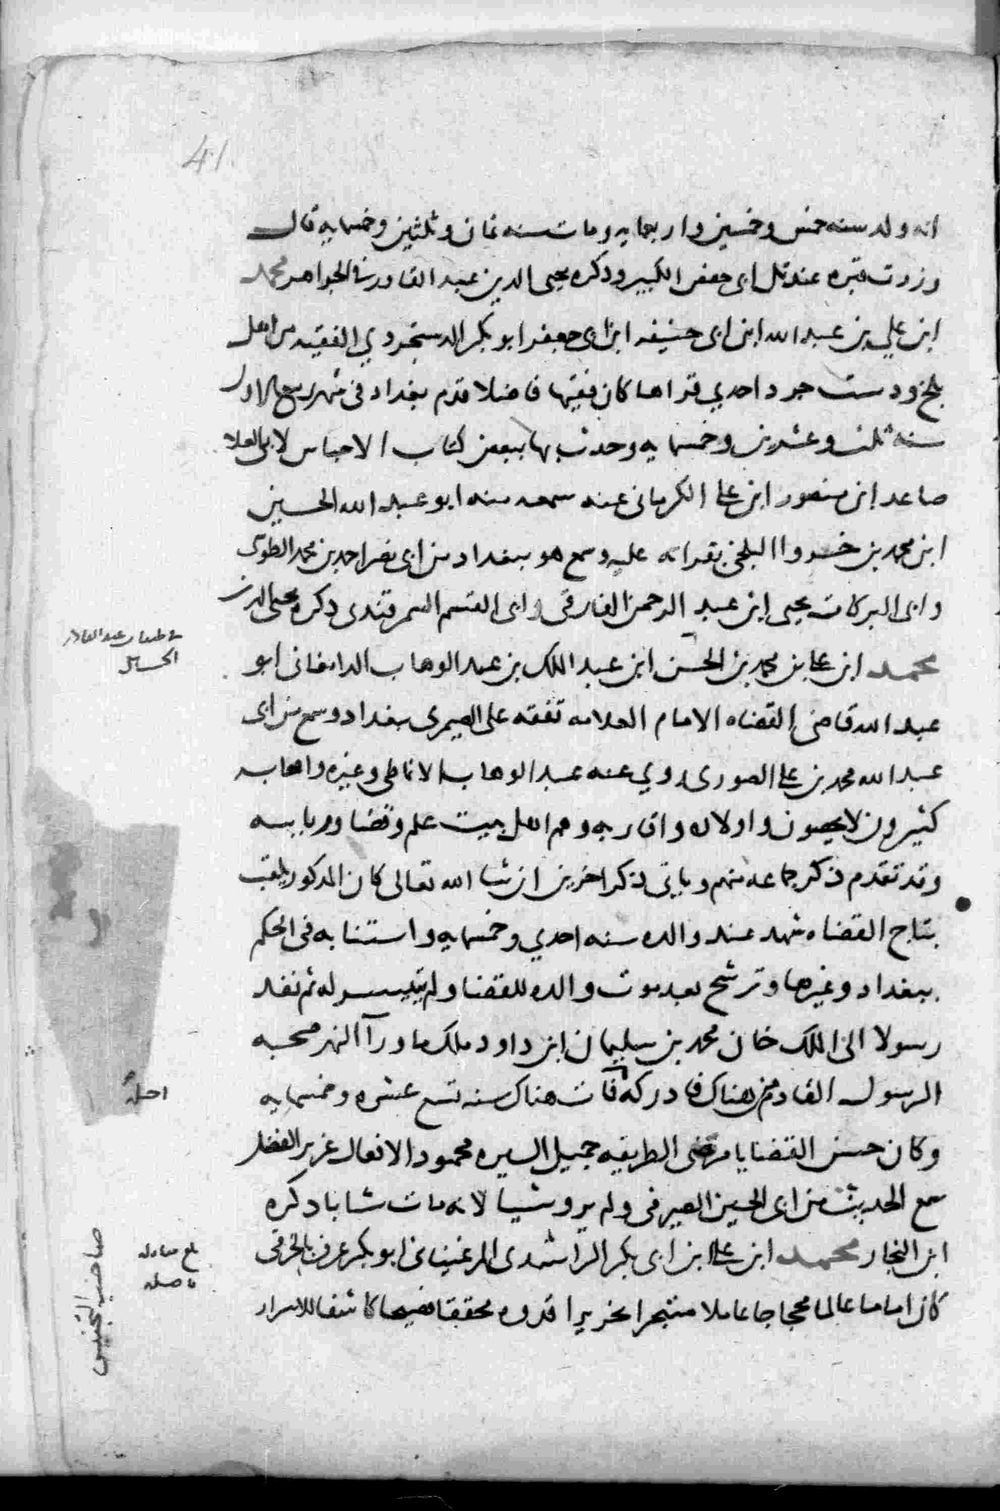 41
انه ولد سنه خمس وخمسين واربعمايه ومات سنه ثمان وثلثين وخمسمايه قال
وزرت قبره عند تل ابى حفص الكبير وذكره محيى الدين عبد القادر فى الجواهر محمد
ابن على بن عبد الله ابن ابى حنيفه ابن ابى جعفر ابو بكر الدستجردي الفقيه من اهل
بلخ ودست جرد احدي قراها كان فقيها فاضلا قدم بغداد فى شهر ربيع الاول
سنه ثلث وعشرين وخمسمايه وحدث بها ببعض كتاب الاجناس لابى العلا
صاعد ابن منصور ابن على الكرمانى عنه سمعه منه ابو عبد الله الحسين
ابن محمد بن خسروا البلخى بقراته عليه وسمع هو ببغداد من ابى نصر احمد بن محمد الطوسى
وابى البركات يحيى ابن عبد الرحمن الفارقى وابى القسم السمرقندى ذكره محيى الدين
محمد ابن على بن محمد بن الحسن ابن عبد الملك بن عبد الوهاب الدامغانى ابو
عبد الله قاضى القضاه الامام العلامه تفقه على الصيمرى ببغداد وسمع من ابى
عبد الله محمد بن على الصورى روي عنه عبد الوهاب الانماطى وغيره واصحابه
كثيرون لا يحصون واولاده واقاربه وهم اهل بيت علم وقضا ورياسه
وقد تقدم ذكر جماعه منهم وياتى ذكر اخرين ان شا الله تعالى كان المذكور يلقب
بتاج القضاه شهد عند والده سنه احدي وخمسمايه واستنابه فى الحكم
ببغداد وغيرها وترشح بعد موت والده للقضا ولم يتيسر له ثم نفذ
رسولا الى الملك خان محمد بن سليمان ابن داود ملك ما ورآ النهر صحبه
الرسول القادم من هناك فادركه فات هناك سنه تسع عشره وخمسمايه
وكان حسن القضايا مرضى الطريقه جميل السيره محمود الافعال غزير الفضل
سمع الحديث من ابى الحسين الصيرفى ولم يرو شيا لانه مات شابا ذكره
ابن النجار محمد ابن على ابن ابى بكر الراشدى المرغينانى ابو بكر عرف بالخرقى
كان اماما عالما محجاجا عاملا متبحرا نحريرا قدوه محققا فصيحا كاشفا للاسرار
فى طبقات عبد القادر
اصله
صاحب التجنيس